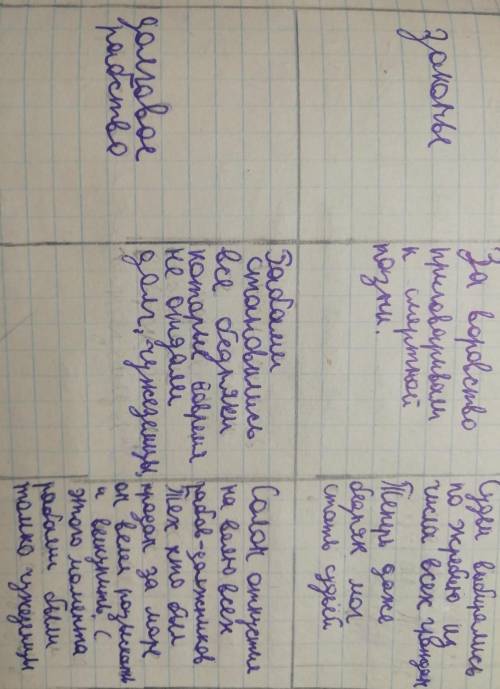 законы
За воровство
приговаривали
к смертной
казни.
Судьи выбирались
по жребию из
числа всех граждан
Теперь даже
бедняк мог
стать судьёй
долговое
рабство
Рабами
становились
все бедняки
которые вовремя
не отдали
долг, чужеземцы,
Солон отпустил
на волю всех
рабов-должников
Тех кто был
продан за море
он велел разыскать
и выкупить. С
этого момента
рабами были
только чужеземцы